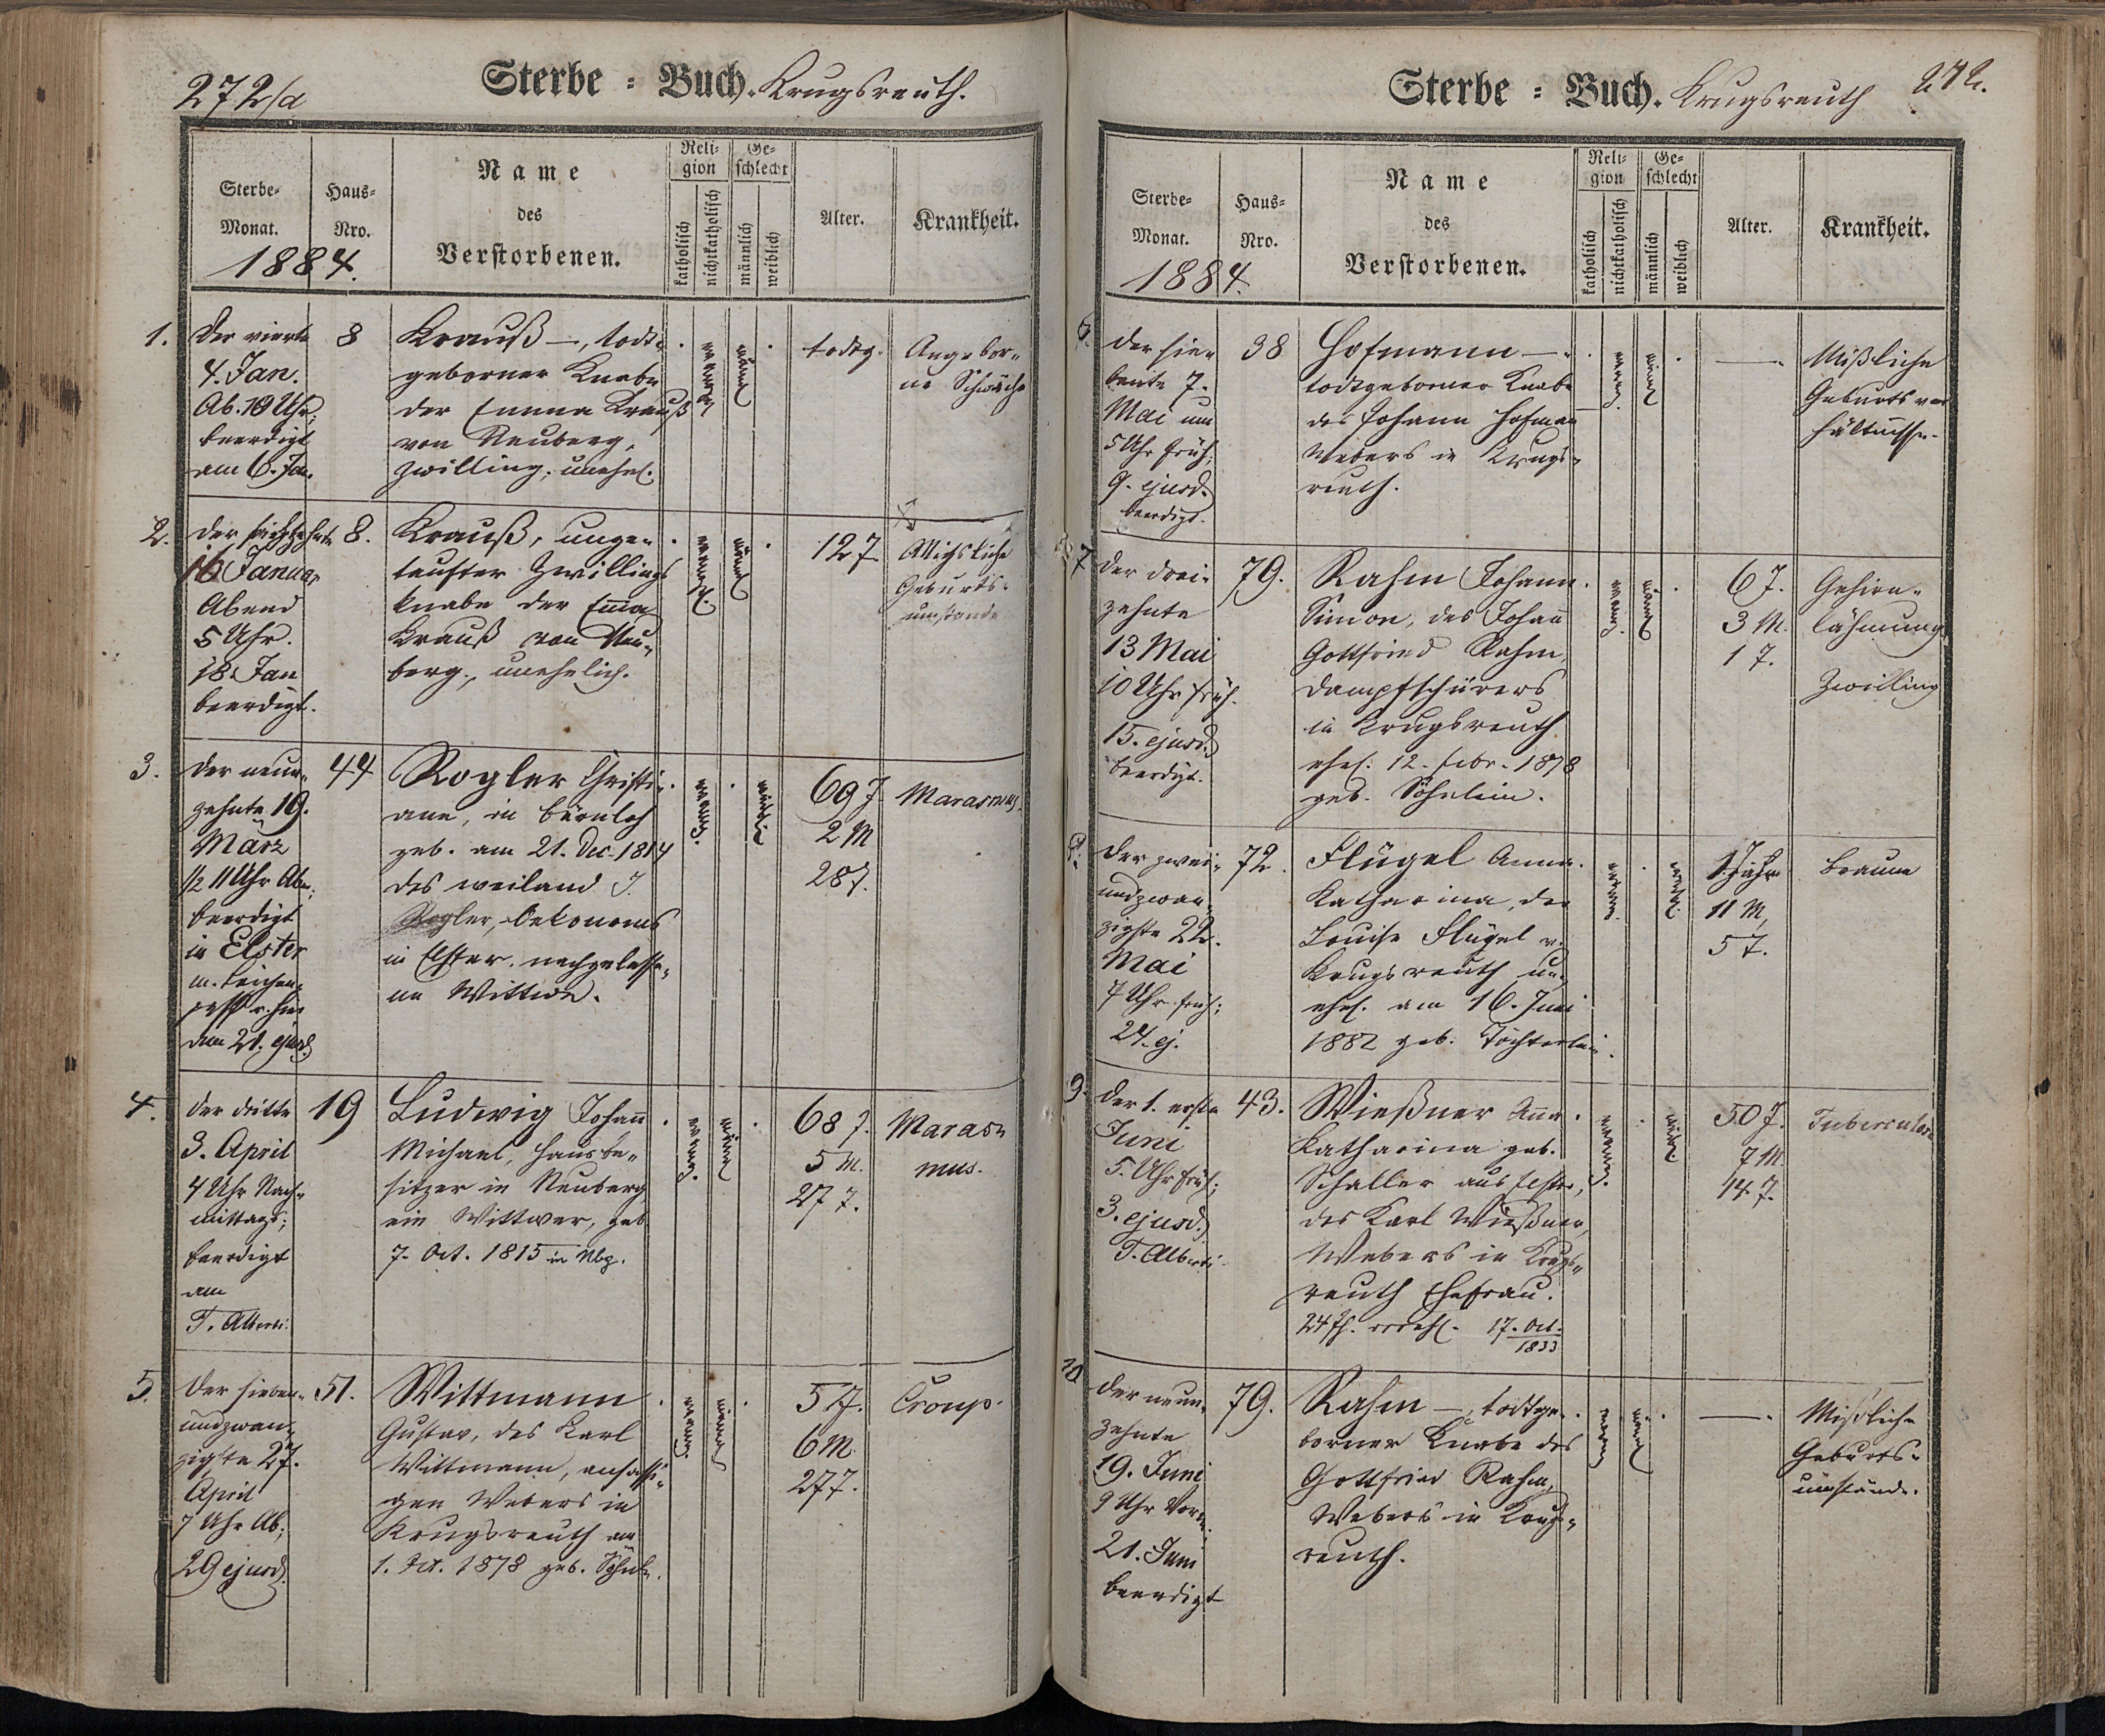 272/a
Sterbe = Buch. Krugsreuth.
Sterbe-
Monat.
1884.
Haus-
Nro.
Name
des
Verstorbenen.
Reli-
gion
katholisch
nichtkatholisch
Ge-
schlecht
männlich
weiblich
Alter.
Krankheit.
1.
Der vierte
4. Jan.
Ab. 10 Uhr;
beerdigt
am 6. Jan.
8
Krauß —, todt-
geborner Knabe
der Emma Krauß
von Neuberg,
Zwilling, unehel.
todtg.
Angebor-
ne Schwäche
2.
Der sechzehnte
16 Januar
Abend
5 Uhr.
18. Jan
beerdigt.
8.
Krauß, unge-
taufter Zwillings
knabe der Emma
Krauß von Neu-
berg, unehelich.
12 T.
Mißliche
Geburts-
umstände
3.
Der neun-
zehnte 19.
März
1/2 11 Uhr Ab.;
beerdigt
in Elster
am 21. ejusd.
44
Rogler Christi-
ane, in Bärnloh
geb. am 21. Dec. 1814
des weiland J.
Rogler, Oekonoms
in Elster nachgelasse-
ne Wittwe.
69 J.
2 M
28 T.
Marasmus.
4.
Der dritte
3. April
4 Uhr Nach-
mittags;
beerdigt
am
T. Alberti.
19
Ludwig Johann
Michael, Hausbe-
sitzer in Neuberg
ein Wittwer, geb
7. Oct. 1815 in Nbg.
68 J.
5 M.
27 T.
Maras-
mus.
5.
Der sieben-
undzwan-
zigste 27.
April
7 Uhr Ab;
29 ejusd.
51.
Wittmann
Gustav, des Karl
Wittmann, ansässi-
gen Webers in
Krugsreuth am
1. Oct. 1878 geb. Söhnl.
5 J.
6 M.
27 T.
Croup.
Sterbe = Buch. Krugsreuth
272.
Sterbe-
Monat.
1884.
Haus-
Nro.
Name
des
Verstorbenen.
Reli-
gion
katholisch
nichtkatholisch
Ge-
schlecht
männlich
weiblich
Alter.
Krankheit.
6.
Der sie-
bente 7.
Mai um
5 Uhr früh;
9. ejusd.
beerdigt.
38
Hofmann —
todtgeborner Knabe
des Johann Hofmann
Webers in Krugs-
reuth.
—
Mißliche
Geburtsver
hältnisse.
7
Der drei-
zehnte
13 Mai
10 Uhr früh.
15. ejusd.
beerdigt.
79.
Rahm Johann
Simon, des Johann
Gottfried Rahm,
Dampfschürers
in Krugsreuth
ehel. 12. Febr. 1878
geb. Söhnlein.
6 J.
3 M.
1 T.
Gehirn-
lähmung
Zwilling
8.
Der zwei-
undzwan-
zigste 22.
Mai
7 Uhr früh;
24. ej.
72.
Flügel Anna
Katharina, der
Louise Flügel v.
Krugsreuth un-
ehel. am 16. Juni
1882 geb. Töchterlein.
1 Jahr
11 M,
5 T.
Bräune
9.
Der 1. erste
Juni
5. Uhr früh;
3. ejusd.
T. Alberti.
43.
Wießner Anna
Katharina geb.
Schaller aus
des Karl Wießner,
Webers in Krugs-
reuth Ehefrau.
17. Oct.
1833
50 J.
7 M.
14 T.
Tuberculose
10
Der neun-
zehnte
19. Juni
9 Uhr Vorm.
21. Juni
beerdigt
79.
Rahm —, todtge-
borner Knabe des
Gottfried Rahm,
Webers in Krugs-
reuth.
—
Mißliche
Geburts-
umstände.